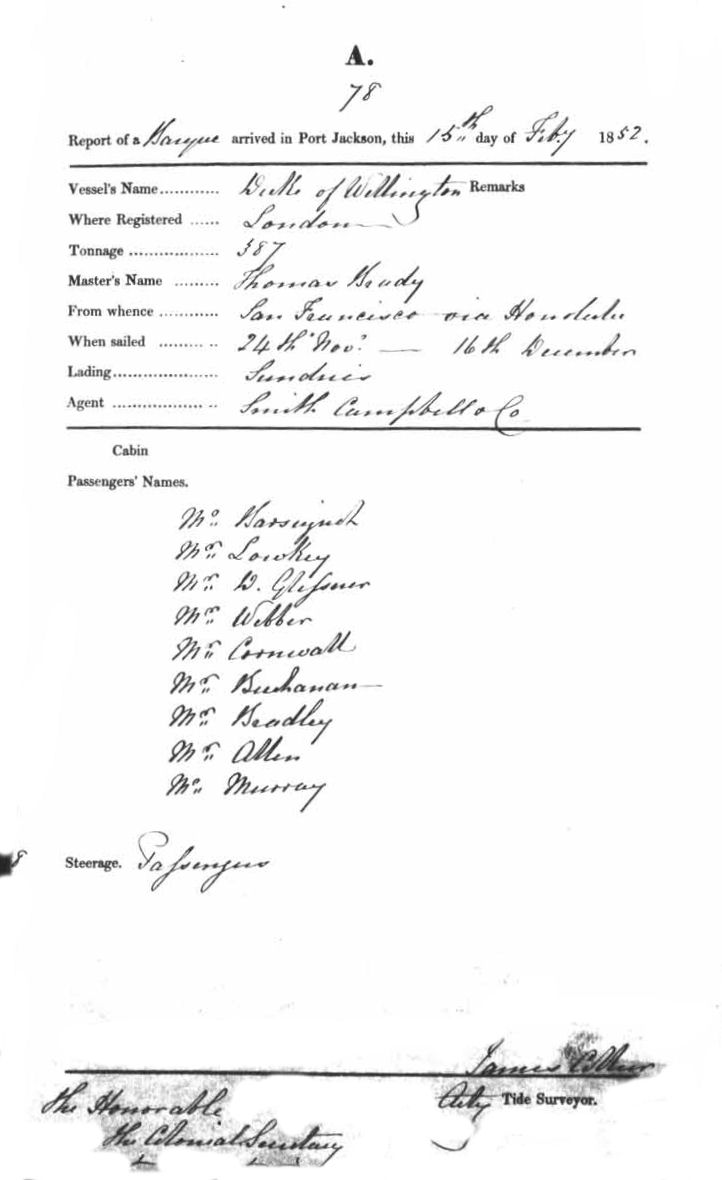 A.
78
Report of a Barque arrived in Port Jackson, this 15th day of Feby 1852.
Vessel's Name............ Duke of Wellington Remarks
Where Registered ...... London
Tonnage .................. 387
Master's Name ......... Thomas Brady
From whence ............ San Francisco via Honolulu
When sailed ......... .. 24th Novr. — 16th December
Lading..................... Sundries
Agent .................. .. Smith Campbell & Co
Cabin
Passengers' Names.
Mr
Mr Lowkey
Mr D. Glessner
Mr Webber
Mr Cornwall
Mr Buchanan
Mr Bradley
Mr Allen
Mr Murray
8 Steerage. Passengers
James
Actg Tide Surveyor.
The Honorable
The Colonial Secretary